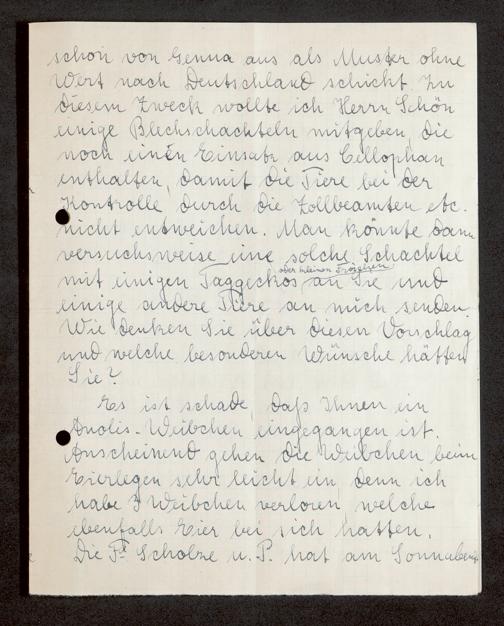 schon von Genua aus als Muster ohne
Wert nach Deutschland schickt. Zu
diesem Zweck wollte ich Herrn Schön
einige Blechschachteln mitgeben, die
noch einen Einsatz aus Cellophan
enthalten, damit die Tiere bei der
Kontrolle durch die Zollbeamten etc.
nicht entweichen. Man könnte dann
versuchsweise eine solche Schachtel
oder kleinen Fröschen
mit einigen Taggeckos an Sie und
einige andere Tiere an mich senden.
Wie denken Sie über diesen Vorschlag
und welche besonderen Wünsche hätten
Sie?
Es ist schade, daß Ihnen ein
Anolis-Weibchen eingegangen ist.
Anscheinend gehen die Weibchen beim
Eierlegen sehr leicht ein, denn ich
habe Weibchen verloren welche
ebenfalls Eier bei sich hatten.
Die Scholze u. P. hat am